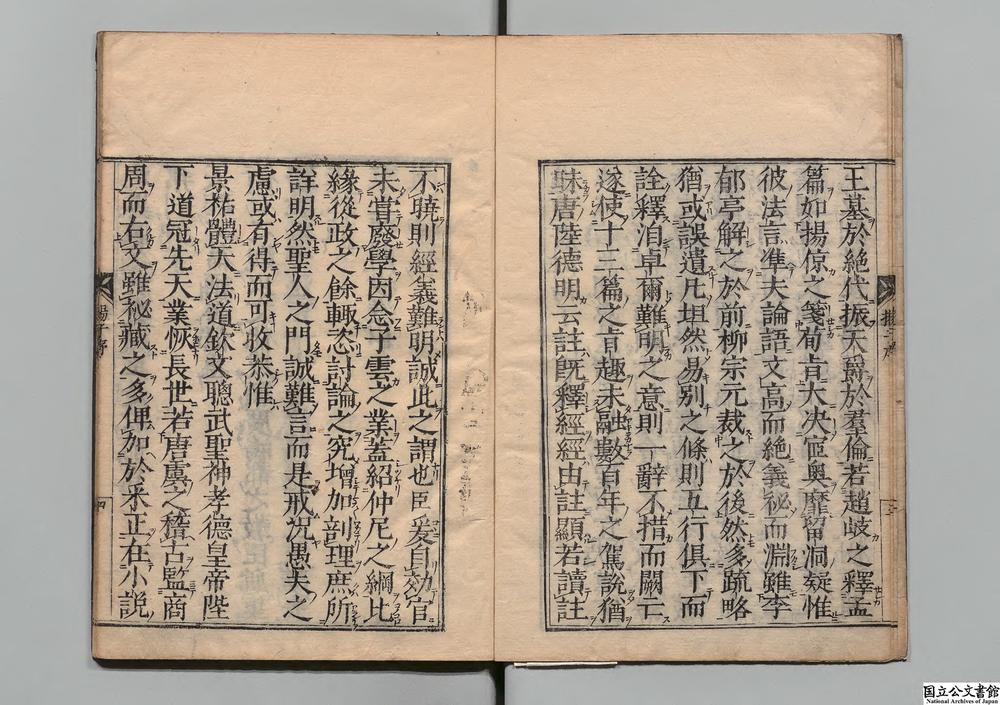 王墓於絶代振天爵於羣倫若趙岐之釋孟
篇如揚倞之箋荀肯大决宧奥靡留洞疑惟
彼法言凖夫論語文高而絶義祕而淵雖李
郁亭解之於前柳宗元裁之於後然多疏略
猶或誤遺凡坦然易别之條則五行俱下而
詮釋洎卓爾難明之意則一辭不措而闕云
遂使十三篇之肯趣未融數百年之駕說猶
昧唐陸德明云註旣釋經經由註顯若讀註
不曉則經義難明誠此之謂也臣爰自効官
未甞廢學因念子雲之業蓋紹仲尼之綱比
緣從政之餘輙恣討論之究增加剖理庶所
詳明然聖人之門誠難言而是戒况愚夫之
慮或有得而可收恭惟
景祐體天法道欽文聰武聖神孝德皇帝陛
下道冠先天業恢長世若唐虞之稽古監商
周而右文雖祕藏之多俾加於釆正在小說
揚子序
四
国立公文書館
National Archives of Japan